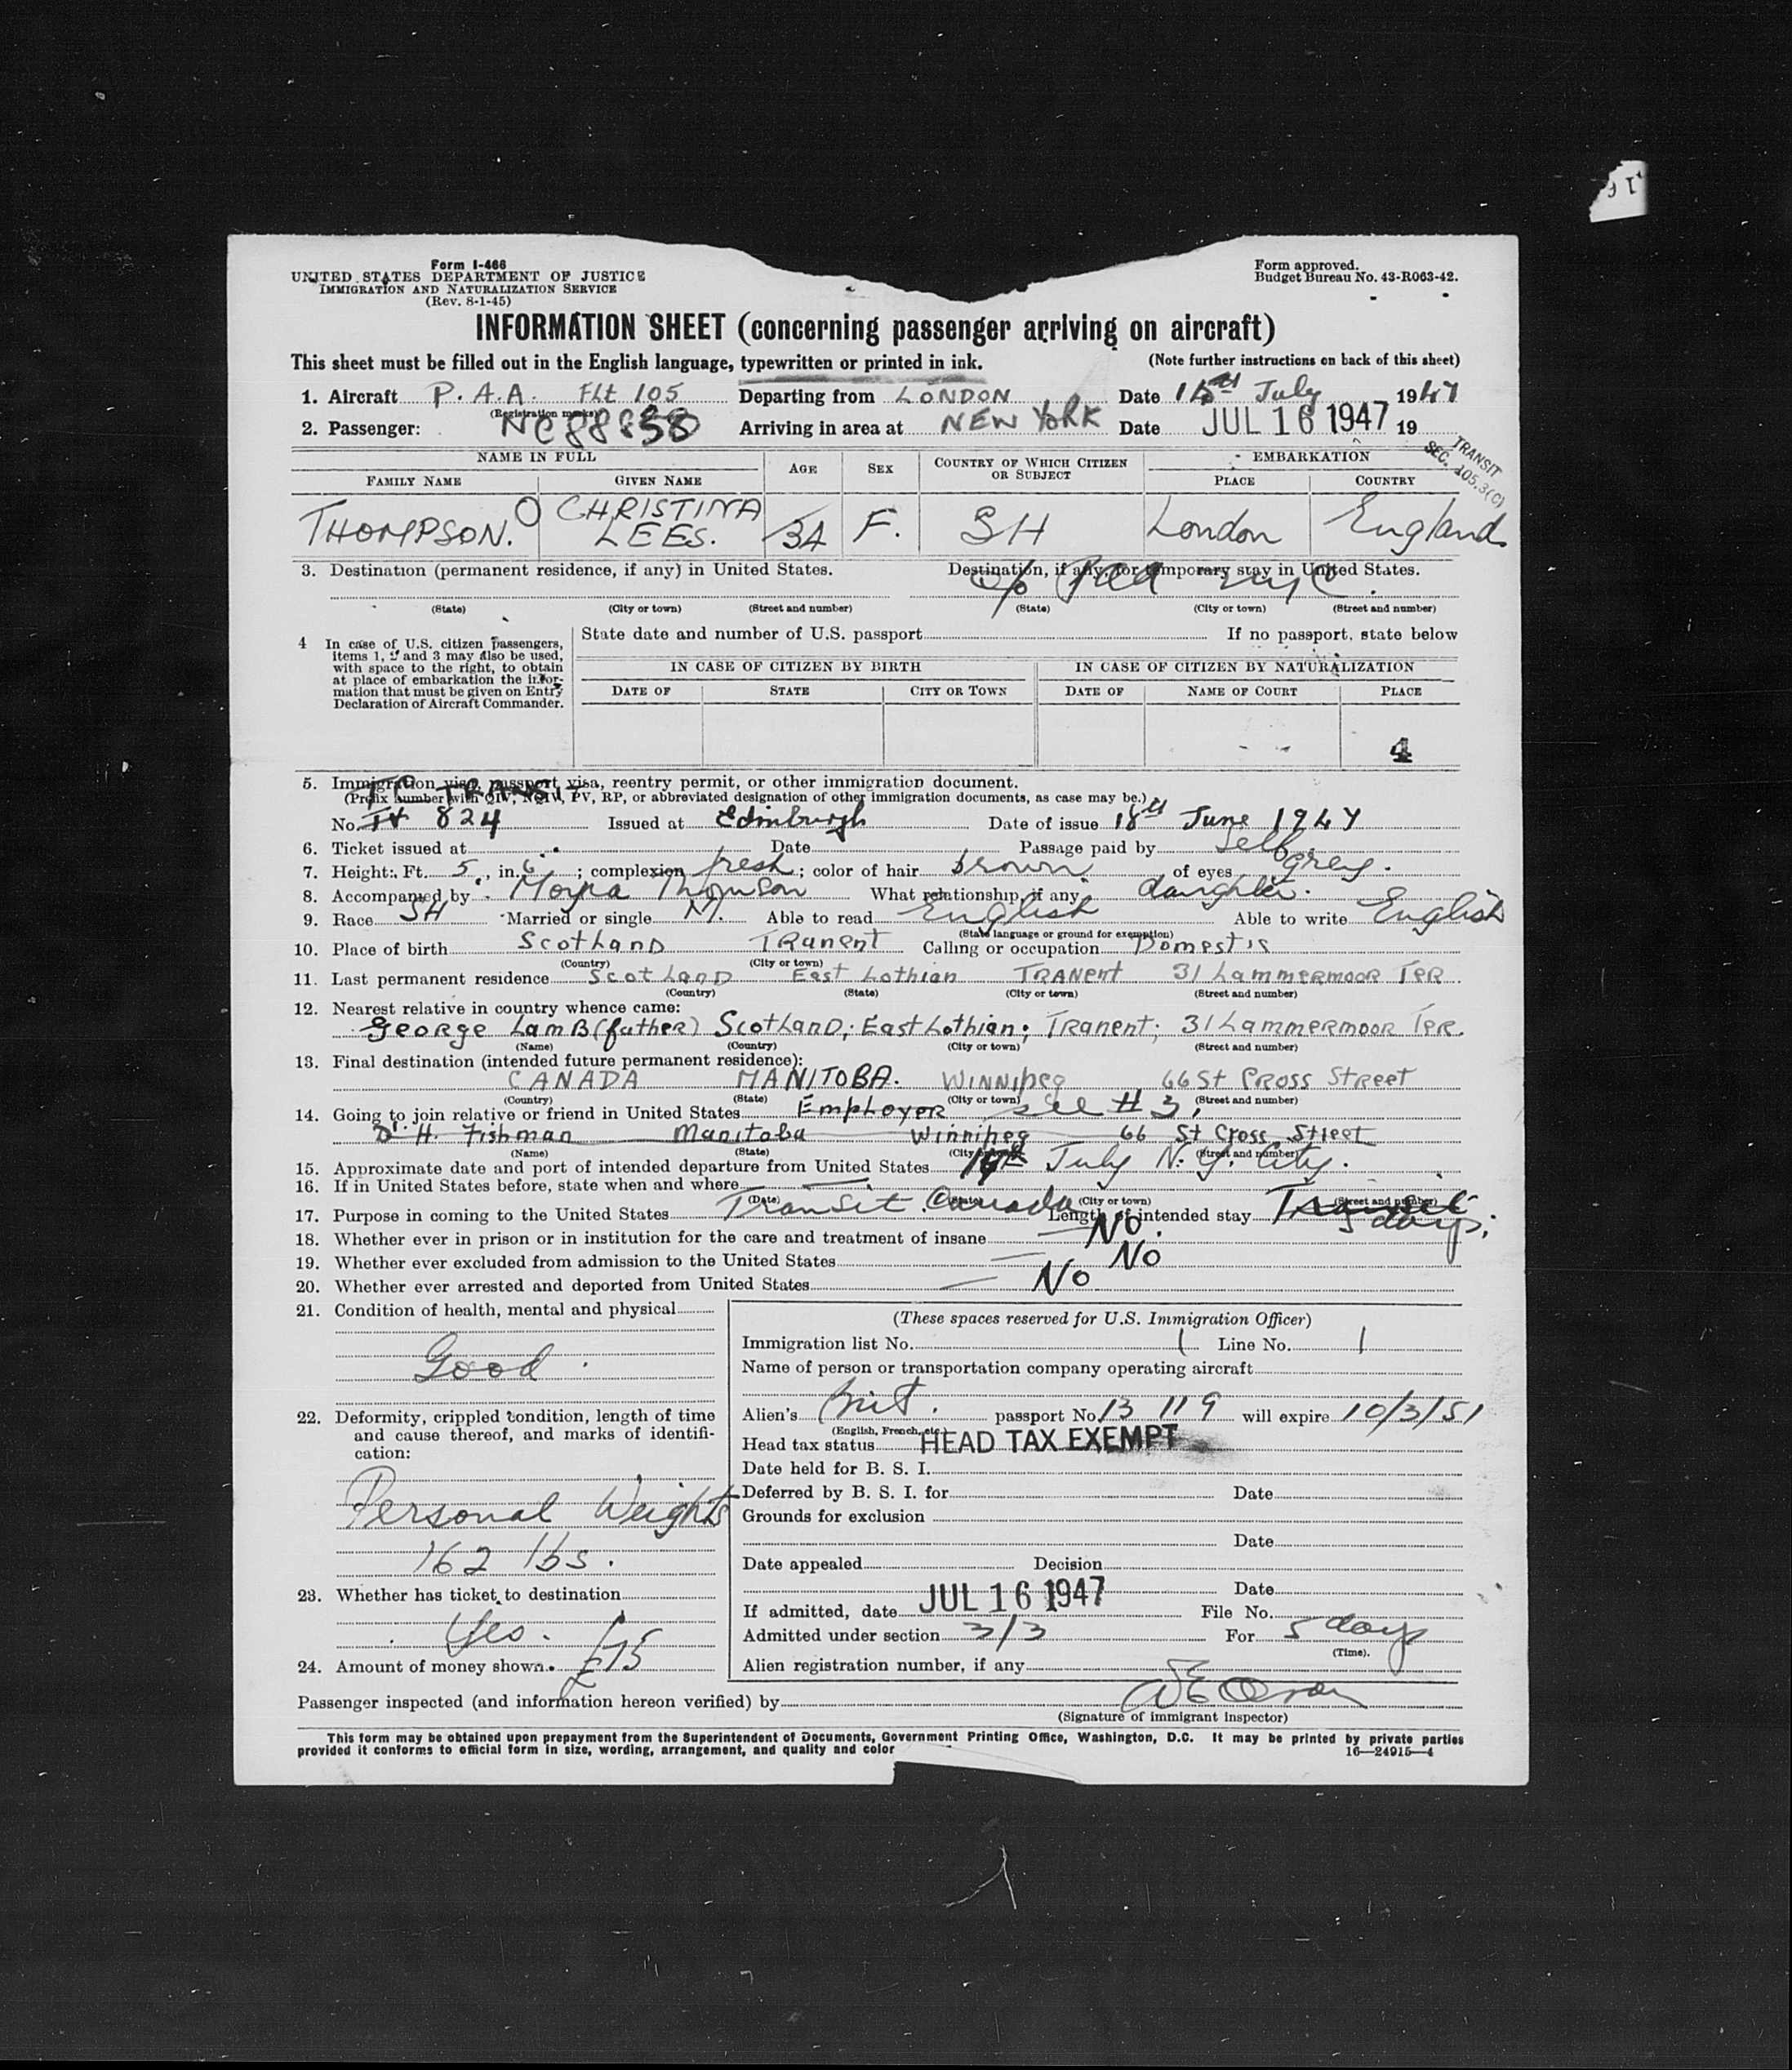 Form I-466
UNITED STATES DEPARTMENT OF JUSTICE
IMMIGRATION AND NATURALIZATION SERVICE
(Rev. 8-1-45)
Form approved.
Budget Bureau No. 43-R063-42.
INFORMATION SHEET (concerning passenger arriving on aircraft)
This sheet must be filled out in the English language, typewritten or printed in ink. (Note further instructions on back of this sheet)
1. Aircraft P.A.A. Flt 105 Departing from LONDON Date 15th July 1947
(Registration marks)
2. Passenger: Arriving in area at NEW YORK Date JUL 16 1947 19
TRANSIT
SEC. 105.3(C)
NAME IN FULL AGE SEX COUNTRY OF WHICH CITIZEN OR SUBJECT EMBARKATION
FAMILY NAME GIVEN NAME PLACE COUNTRY
THOMPSON. CHRISTINA LEES. 34 F. SH London England
3. Destination (permanent residence, if any) in United States. Destination, if any, for temporary stay in United States.
c/o PAA NYC.
(State) (City or town) (Street and number) (State) (City or town) (Street and number)
4 In case of U.S. citizen passengers, items 1, 2 and 3 may also be used, with space to the right, to obtain at place of embarkation the information that must be given on Entry Declaration of Aircraft Commander.
State date and number of U.S. passport If no passport, state below
IN CASE OF CITIZEN BY BIRTH IN CASE OF CITIZEN BY NATURALIZATION
DATE OF STATE CITY OR TOWN DATE OF NAME OF COURT PLACE
4
5. Immigration visa, passport visa, reentry permit, or other immigration document.
TRANSIT
(Prefix number with QIV, NQIV, PV, RP, or abbreviated designation of other immigration documents, as case may be.)
No. 824 Issued at Edinburgh Date of issue 18th June 1947
6. Ticket issued at Date Passage paid by Self
7. Height: Ft. 5, in. 6; complexion fresh; color of hair brown of eyes grey.
8. Accompanied by Moyra Thomson What relationship, if any daughter.
9. Race SH Married or single M. Able to read English Able to write English
(State language or ground for exemption)
10. Place of birth Scotland Tranent Calling or occupation Domestic
(Country) (City or town)
11. Last permanent residence Scotland East Lothian Tranent 31 Lammermoor Ter.
(Country) (State) (City or town) (Street and number)
12. Nearest relative in country whence came:
George Lamb (father) Scotland; East Lothian; Tranent; 31 Lammermoor Ter.
(Name) (Country) (City or town) (Street and number)
13. Final destination (intended future permanent residence):
CANADA MANITOBA. Winnipeg 66 St Cross Street
(Country) (State) (City or town) (Street and number)
14. Going to join relative or friend in United States Employer see #3,
Dr. H. Fishman Manitoba Winnipeg 66 St Cross Street
(Name) (State) (City or town) (Street and number)
15. Approximate date and port of intended departure from United States July N.Y. City.
16. If in United States before, state when and where
(Date) (State) (City or town) (Street and number)
17. Purpose in coming to the United States Transit Canada Length of intended stay Transit 5 days.
18. Whether ever in prison or in institution for the care and treatment of insane No.
19. Whether ever excluded from admission to the United States No
20. Whether ever arrested and deported from United States No
21. Condition of health, mental and physical
Good.
22. Deformity, crippled condition, length of time and cause thereof, and marks of identification:
Personal Weights
162 lbs.
23. Whether has ticket to destination
Yes.
24. Amount of money shown £75
(These spaces reserved for U.S. Immigration Officer)
Immigration list No. 1 Line No. 1
Name of person or transportation company operating aircraft
Alien's Brit. passport No. 13119 will expire 10/3/51
(English, French, etc.)
Head tax status HEAD TAX EXEMPT
Date held for B. S. I.
Deferred by B. S. I. for Date
Grounds for exclusion
Date
Date appealed Decision
Date
If admitted, date JUL 16 1947 File No.
Admitted under section 3/3 For 5 days
(Time).
Alien registration number, if any
Passenger inspected (and information hereon verified) by
(Signature of immigrant inspector)
This form may be obtained upon prepayment from the Superintendent of Documents, Government Printing Office, Washington, D.C. It may be printed by private parties
provided it conforms to official form in size, wording, arrangement, and quality and color
16—24915-4